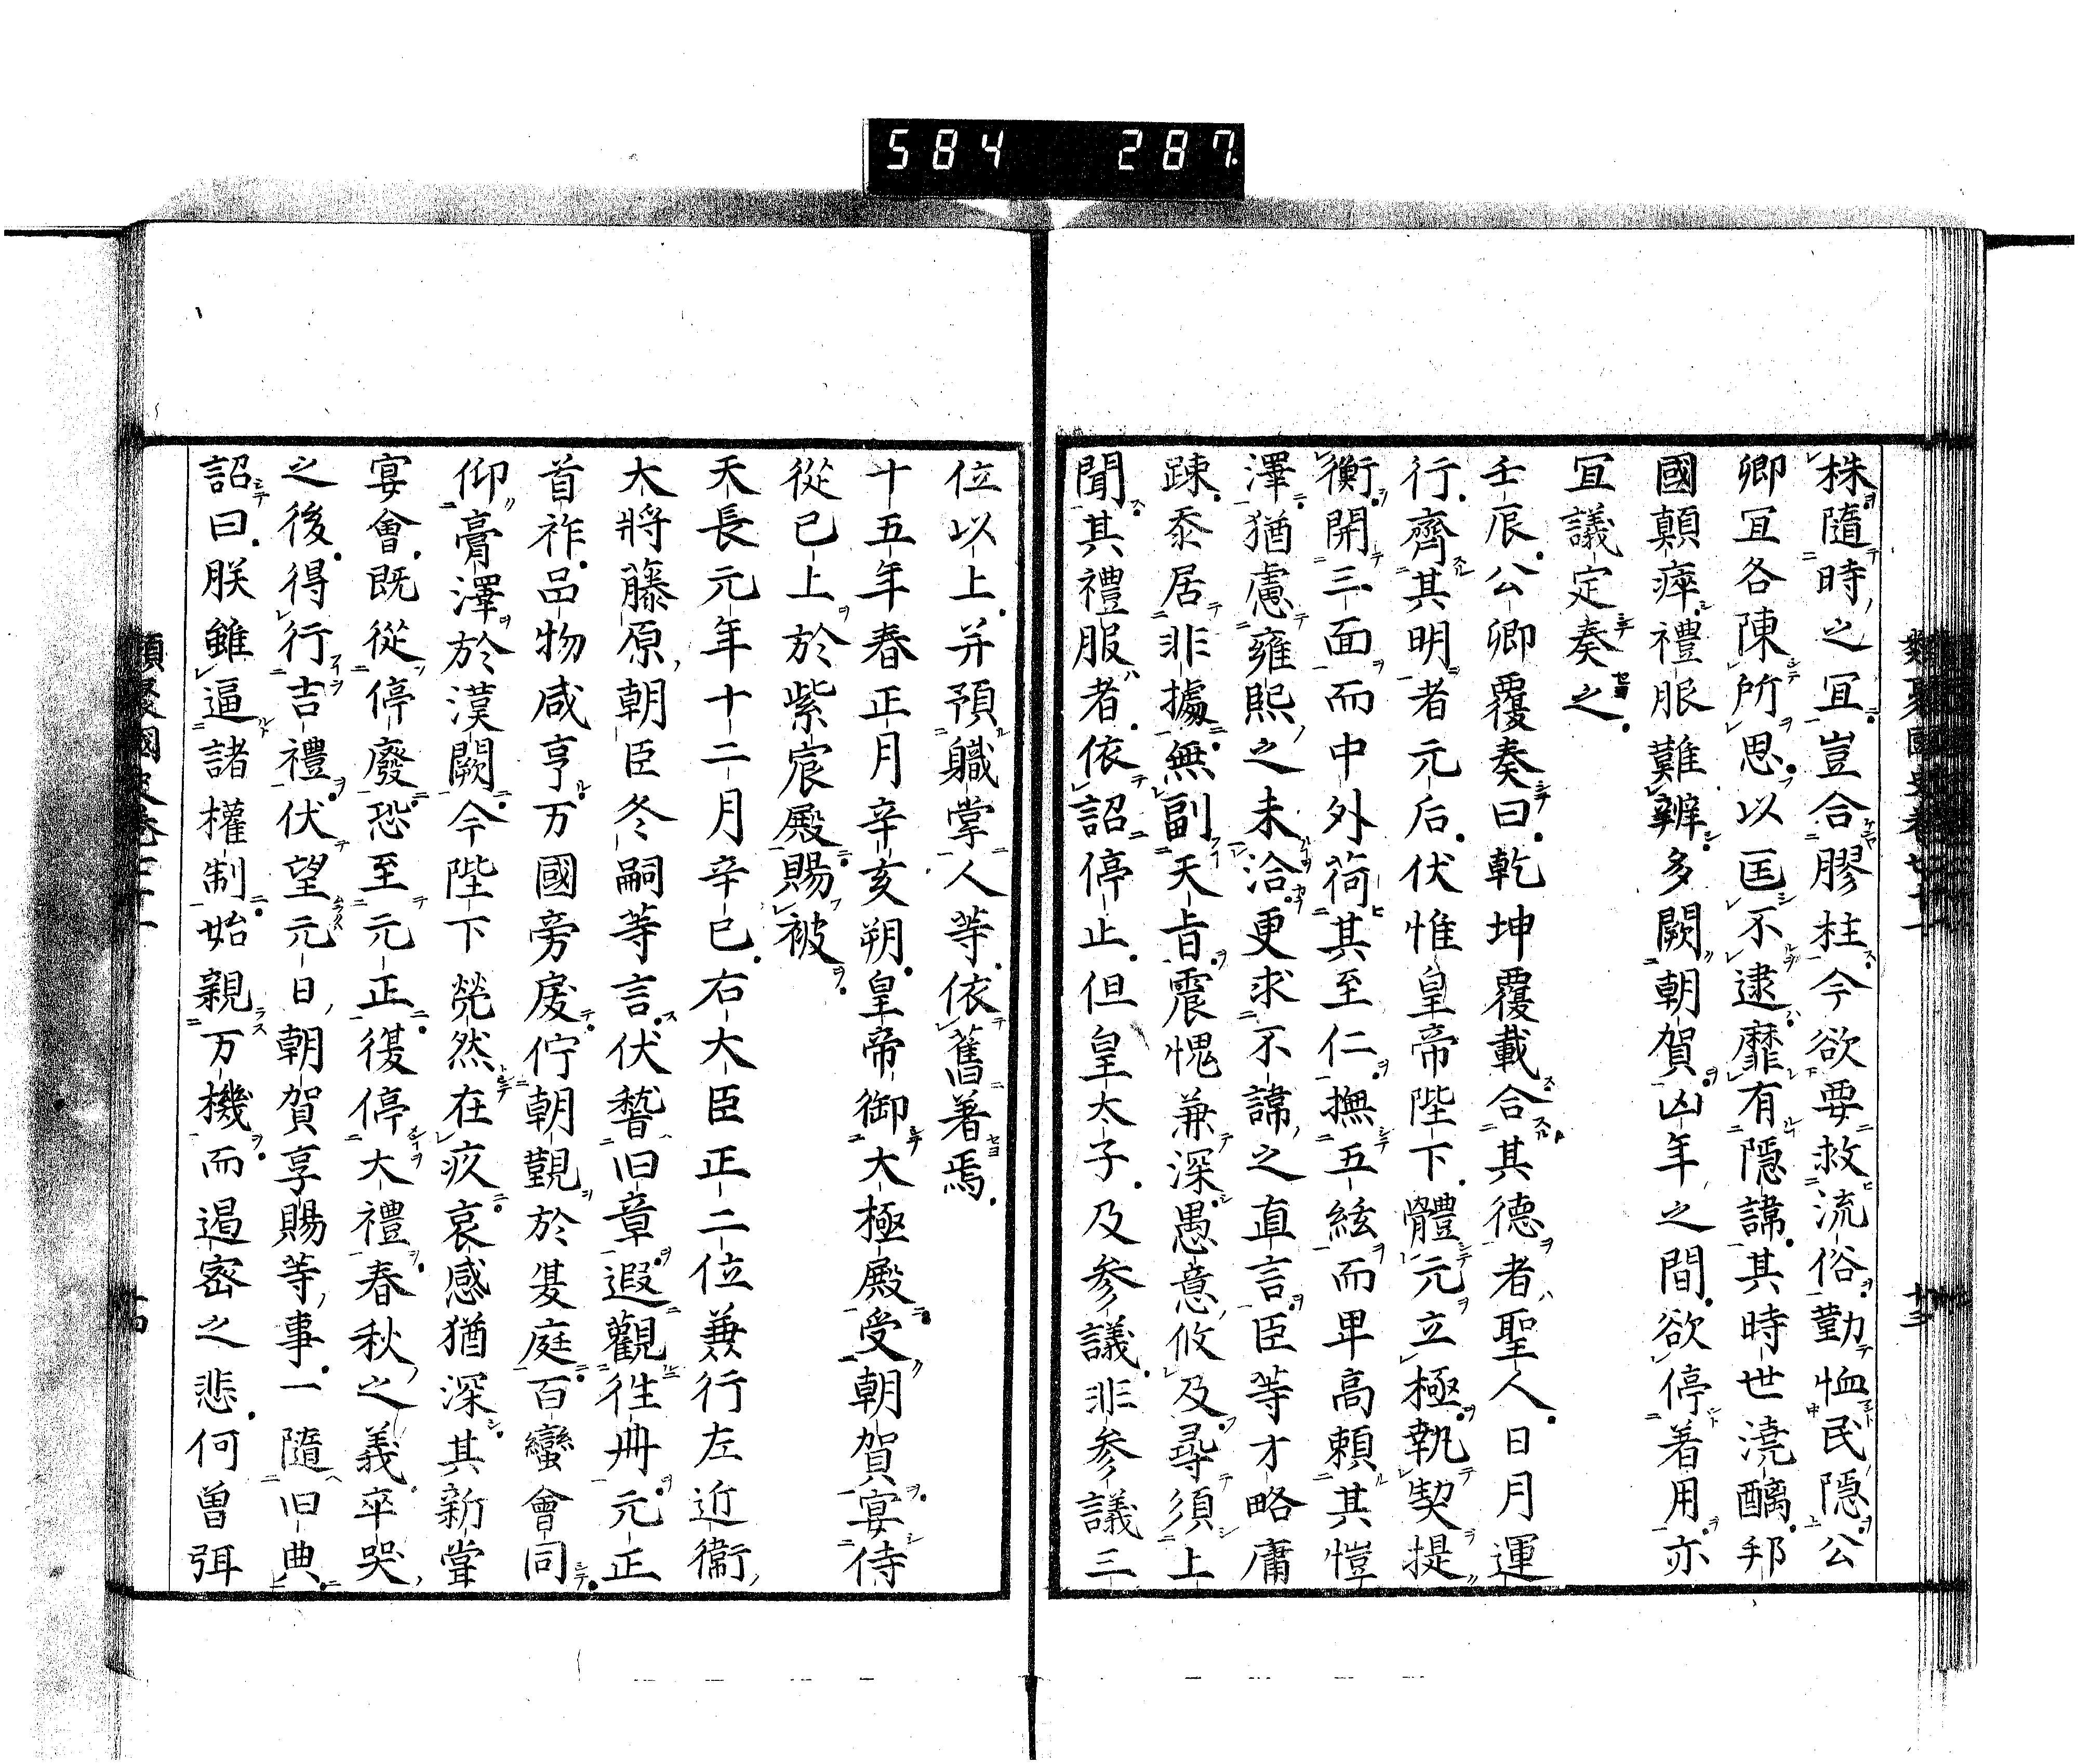 584 287
株隨時之冝豈合膠柱今欲要救流俗勤恤民隱公
卿冝各陳所思以匡不逮靡有隱諱其時世澆醨邦
國顛瘁禮服難辨多闕朝賀凶年之間欲停着用亦
冝議定奏之
壬辰公卿覆奏曰乾坤覆載合其德者聖人日月運
行齊其明者元后伏惟皇帝陛下體元立極執契提
衡開三面而中外荷其至仁撫五絃而畢高賴其愷
澤猶慮雍熙之未洽更求不諱之直言臣等才略庸
踈忝居非據無副天旨震愧兼深愚意攸及尋須上
聞其禮服者依詔停止但皇太子及參議非參議三
位以上并預職掌人等依舊著焉
十五年春正月辛亥朔皇帝御大極殿受朝賀宴侍
從已上於紫宸殿賜被
天長元年十二月辛已右大臣正二位兼行左近衛
大將藤原朝臣冬嗣等言伏瞽旧章遐觀徃冊元正
首祚品物咸亨万國旁戾佇朝覲於夏庭百蠻會同
仰膏澤於漢闕今陛下煢然在疚哀感猶深其新甞
宴會既從停廢恐至元正復停大禮春秋之義卒哭
之後得行吉禮伏望元日朝賀享賜等事一隨旧典
詔曰朕雖逼諸權制始親万機而遏密之悲何曽弭
類聚國史卷七十一
十三